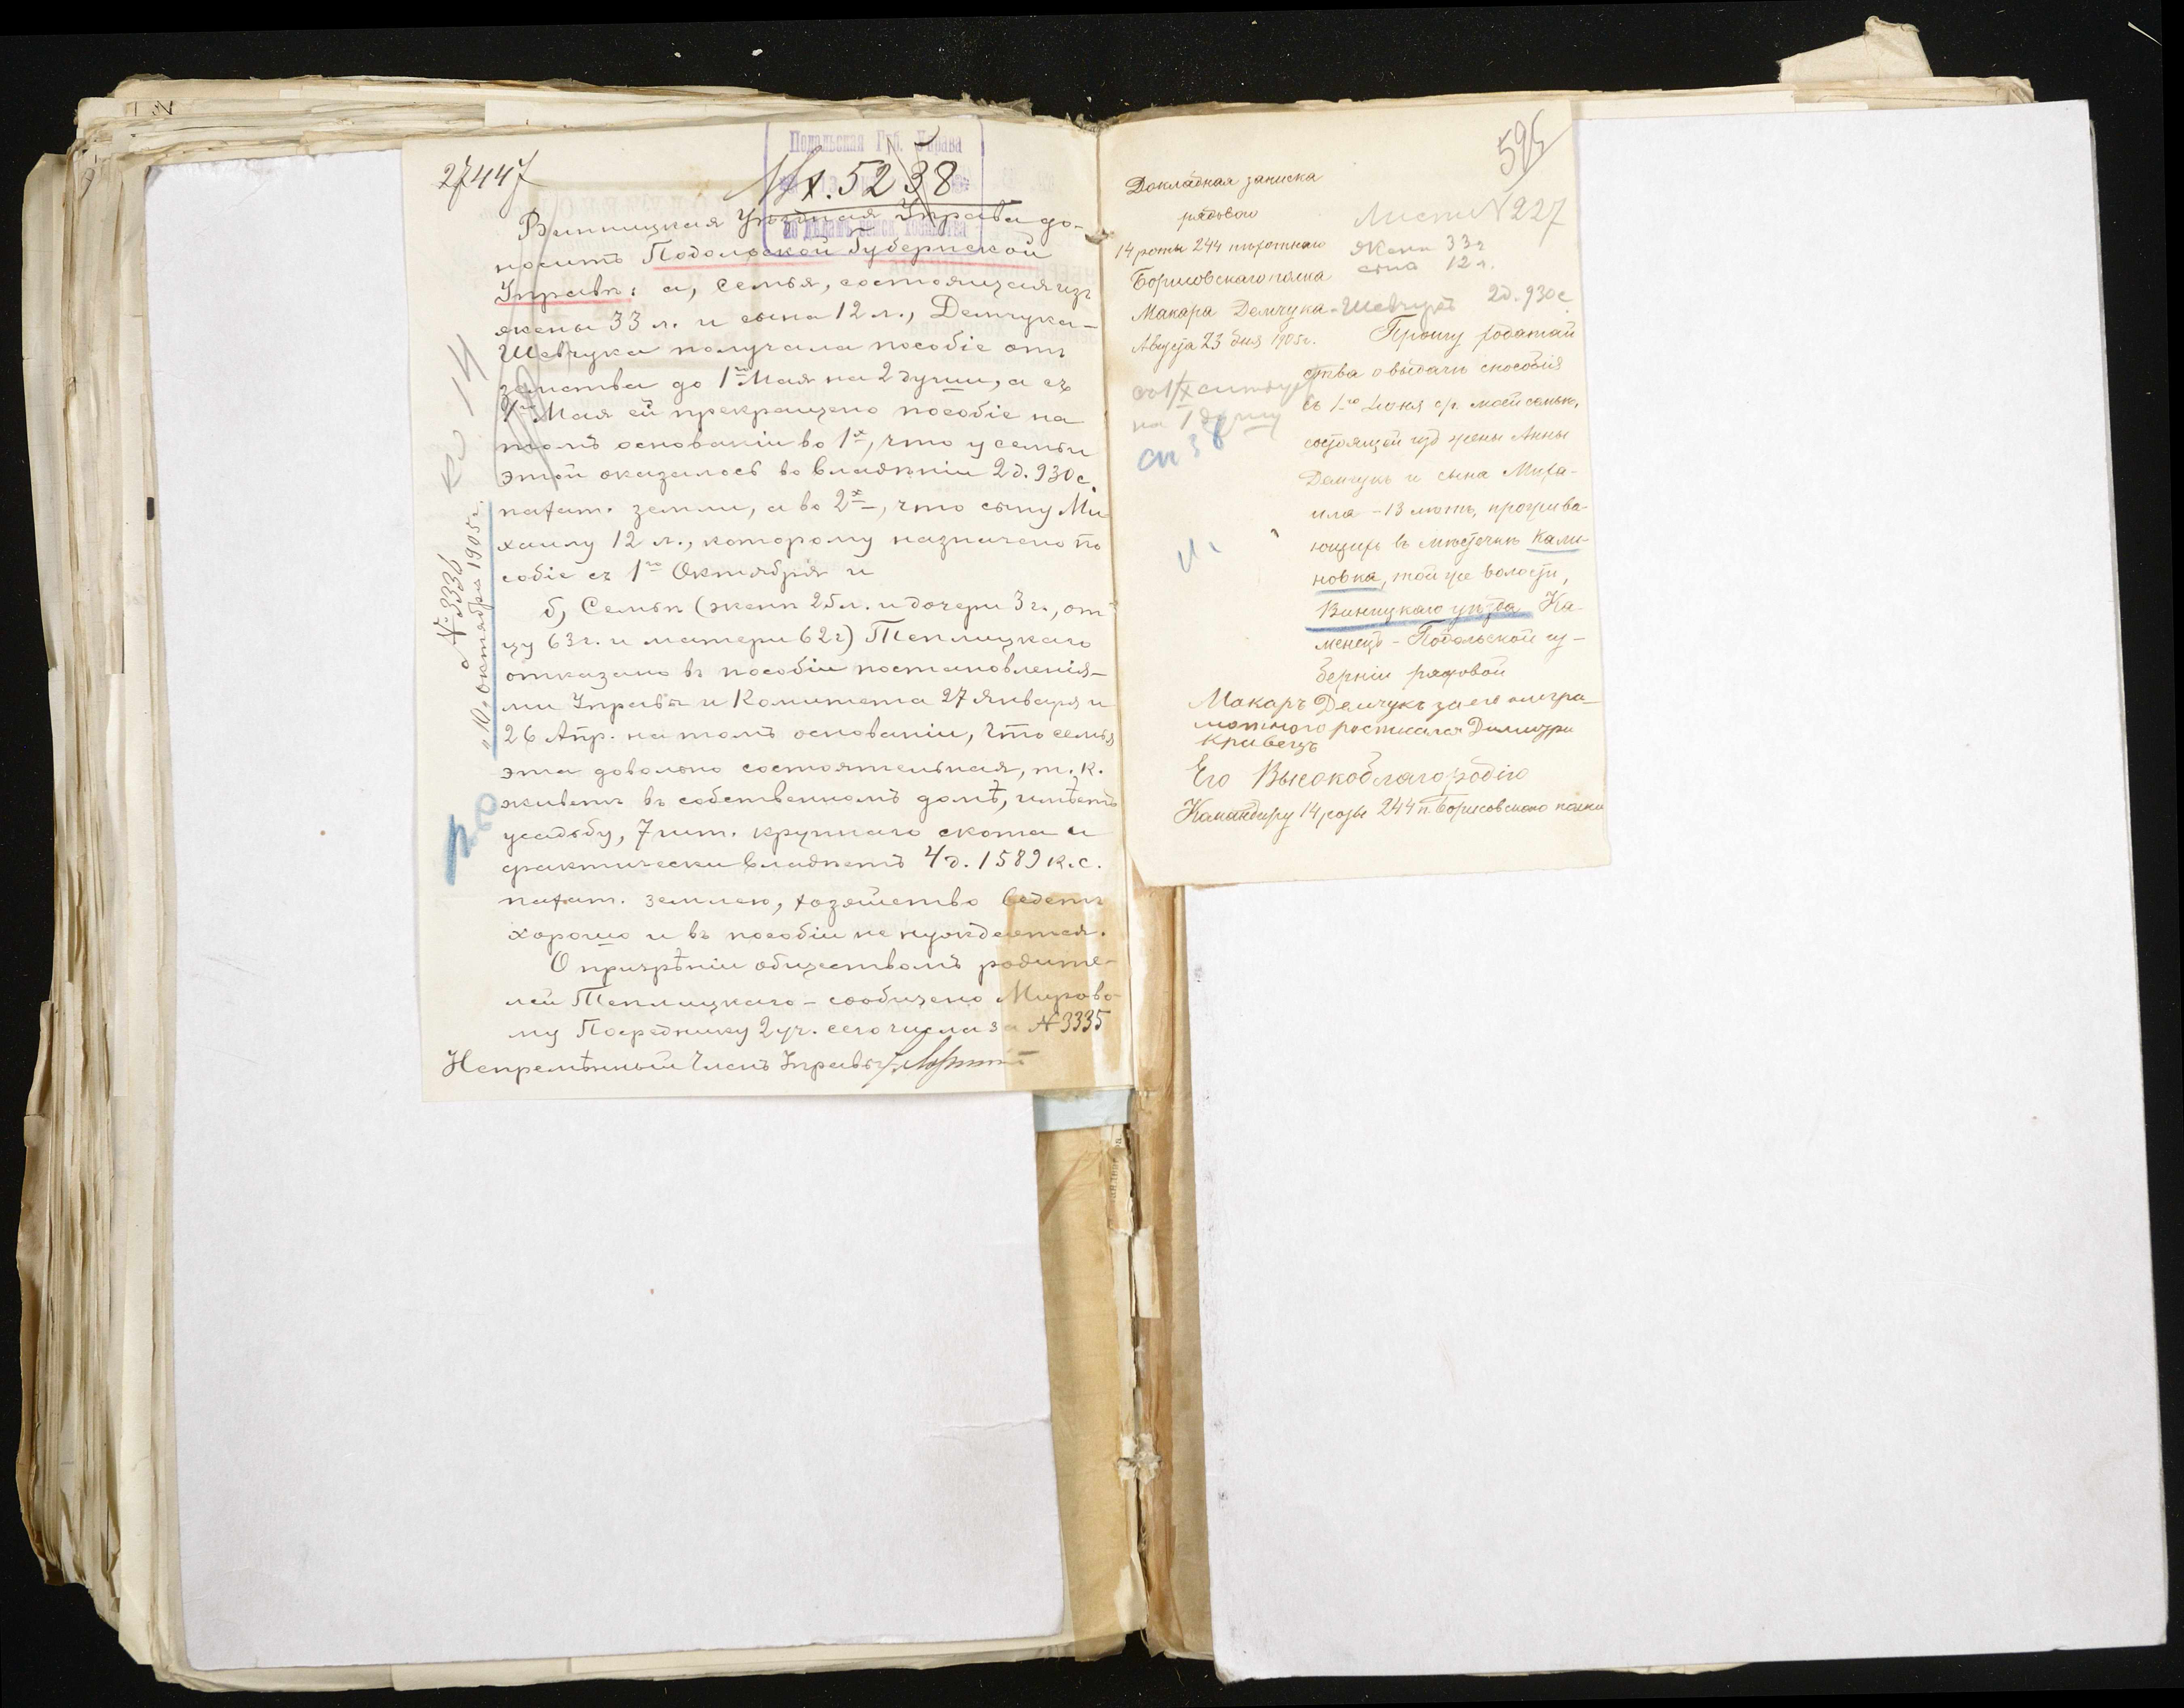 27447
Подольская Губ. Управа
Вх. 5238
Винницкая Уѣздная Управа до-
носитъ Подольской Губернской
Управѣ: а, семья, состоящая изъ
жены 33 л. и сына 12 л., Демчука-
Шевчука получала пособіе отъ
земства до 1го Мая на 2 души, а съ
1го Мая ей прекращено пособіе на
томъ основаніи во 1х, что у семьи
этой оказалось во владѣніи 2 д. 930 с.
пахат. земли, а во 2х, что сыну Ми
хаилу 12 л., которому назначено по
собіе съ 1го Октября и
б, Семьѣ (женѣ 25 л. и дочери 3 г., от-
цу 63 г. и матери 62 г) Теплицкаго
отказано въ пособіи постановленія-
ми Управы и Комитета 27 Января и
26 Апр. на томъ основаніи, что семья
эта довольно состоятельная, т. к.
живетъ въ собственномъ домѣ, имѣетъ
усадьбу, 7 шт. крупнаго скота и
фактически владѣетъ 4 д. 1589 к. с.
пахат. землею, хозяйство ведетъ
хорошо и въ пособіи не нуждается.
О призрѣніи обществомъ родите-
лей Теплицкаго - сообщено Мирово-
му Посреднику 2 уч. сего числа за № 3335
Непремѣнный Членъ Управы
№ 3336
"10" октября 1905 г.
595
Докладная записка
рядового
14 роты 244 пѣхотнаго
Борисовскаго полка
Макара Демчука-Шевчукъ
Августа 23 дня 1905 г.
Листъ № 227
Жена 33 г
сына 12 л.
2 д. 930 с
Прошу ходатай
ства о выдачѣ способія
съ 1-го Іюня с/г. моей семьѣ,
состоящей изъ жены Анны
Демчукъ и сына Миха-
ила - 13 лѣтъ, прожива-
ющихъ въ мѣстечкѣ Кали-
новка, той же волости,
Виницкаго уѣзда Ка-
менецъ-Подольской гу-
берніи рядовой
Макаръ Демчукъ за его неигра-
мотного росписался Димитри
Кравецъ
на 1 душу
Его Высокоблагородію
Командиру 14 роты 244 п. Борисовскаго полка